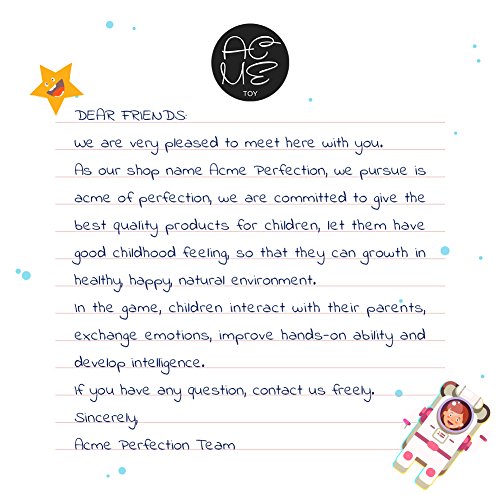 ACME
TOY
DEAR FRIENDS:
We are very pleased to meet here with you.
As our shop name Acme Perfection, we pursue is
acme of perfection, we are committed to give the
best quality products for children, let them have
good childhood feeling, so that they can growth in
healthy, happy, natural environment.
In the game, children interact with their parents,
exchange emotions, improve hands-on ability and
develop intelligence.
If you have any question, contact us freely.
Sincerely,
Acme Perfection Team